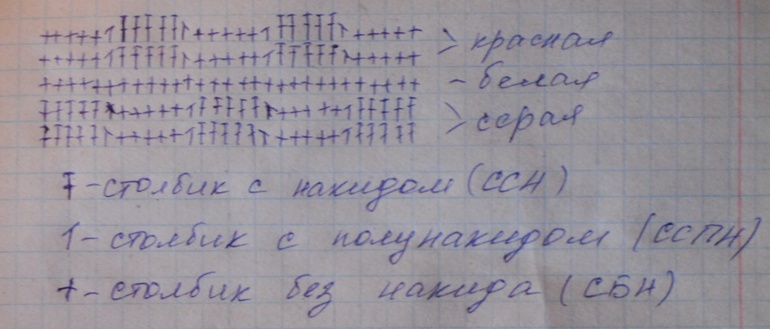 красная
белая
серая
Ŧ - столбик с накидом (ССН)
1 - столбик с полунакидом (ССПН)
+ - столбик без накида (СБН)